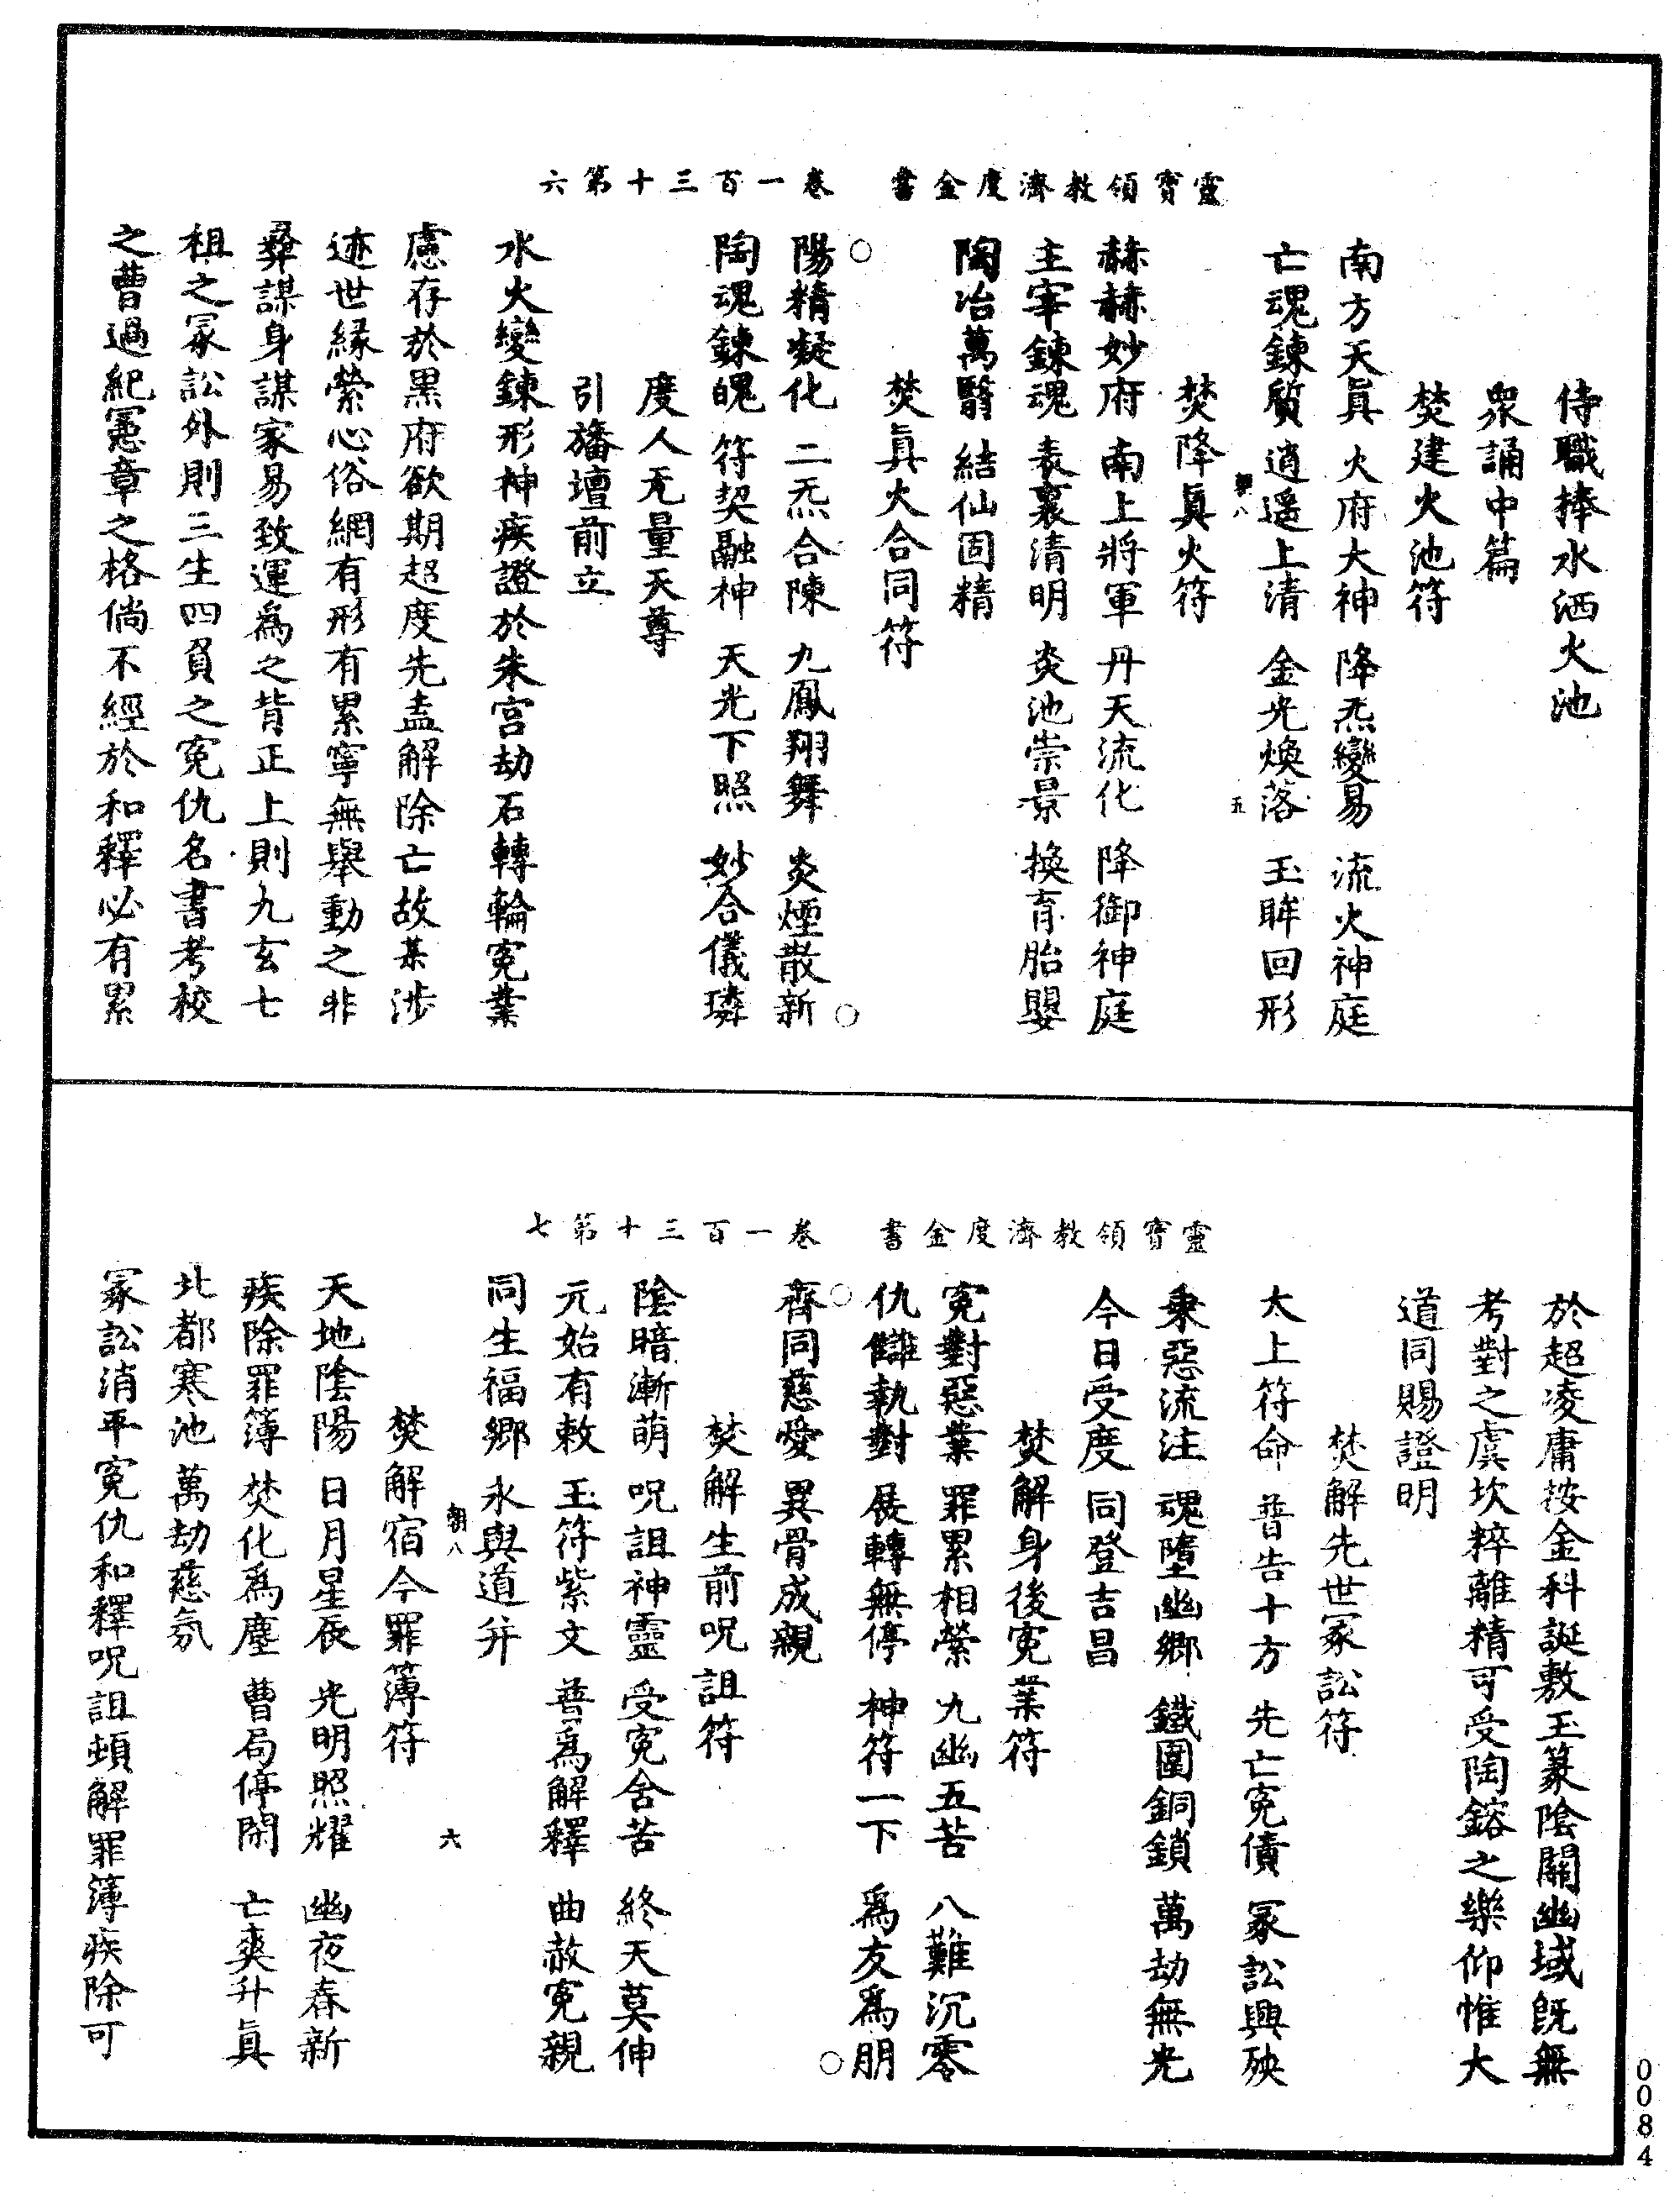 靈寶領教濟度金書 卷一百三十第六
侍職捧水洒火池
衆誦中篇
焚建火池符
南方天眞 火府大神 降炁變易 流火神庭
亡魂鍊質 逍遥上清 金光煥落 玉眸回形
朝八 五
焚降眞火符
赫赫妙府 南上將軍 丹天流化 降御神庭
主宰鍊魂 表裏清明 炎池崇景 換育胎嬰
陶冶萬翳 結仙固精
焚眞火合同符
陽精凝化 二炁合陳 九鳳翔舞 炎煙散新
陶魂鍊魄 符契融神 天光下照 妙合儀璘
度人无量天尊
引旛壇前立
水火變鍊形神疾證於朱宮劫石轉輪寃業
慮存於黑府欲期超度先盍解除亡故某涉
迹世緣縈心俗網有形有累寧無舉動之非
彝謀身謀家易致運爲之背正上則九玄七
祖之冢訟外則三生四負之寃仇名書考校
之曹過紀憲章之格倘不經於和釋必有累
靈寶領教濟度金書 卷一百三十第七
於超凌庸按金科誕敷玉篆陰關幽域旣無
考對之虞坎粹離精可受陶鎔之樂仰惟大
道同賜證明
焚解先世冢訟符
太上符命 普告十方 先亡寃債 冢訟興殃
秉惡流注 魂墮幽鄉 鐵圍銅鎖 萬劫無光
今日受度 同登吉昌
焚解身後寃業符
寃對惡業 罪累相縈 九幽五苦 八難沉零
仇讎執對 展轉無停 神符一下 爲友爲朋
齊同慈愛 異骨成親
焚解生前呪詛符
陰暗漸萌 呪詛神靈 受寃舍苦 終天莫伸
元始有敕 玉符紫文 善爲解釋 曲赦寃親
同生福鄉 永與道并
朝八 六
焚解宿今罪簿符
天地陰陽 日月星辰 光明照耀 幽夜春新
疾除罪簿 焚化爲塵 曹局停閑 亡爽升眞
北都寒池 萬劫慈氛
冢訟消平寃仇和釋呪詛頓解罪薄疾除可
0084